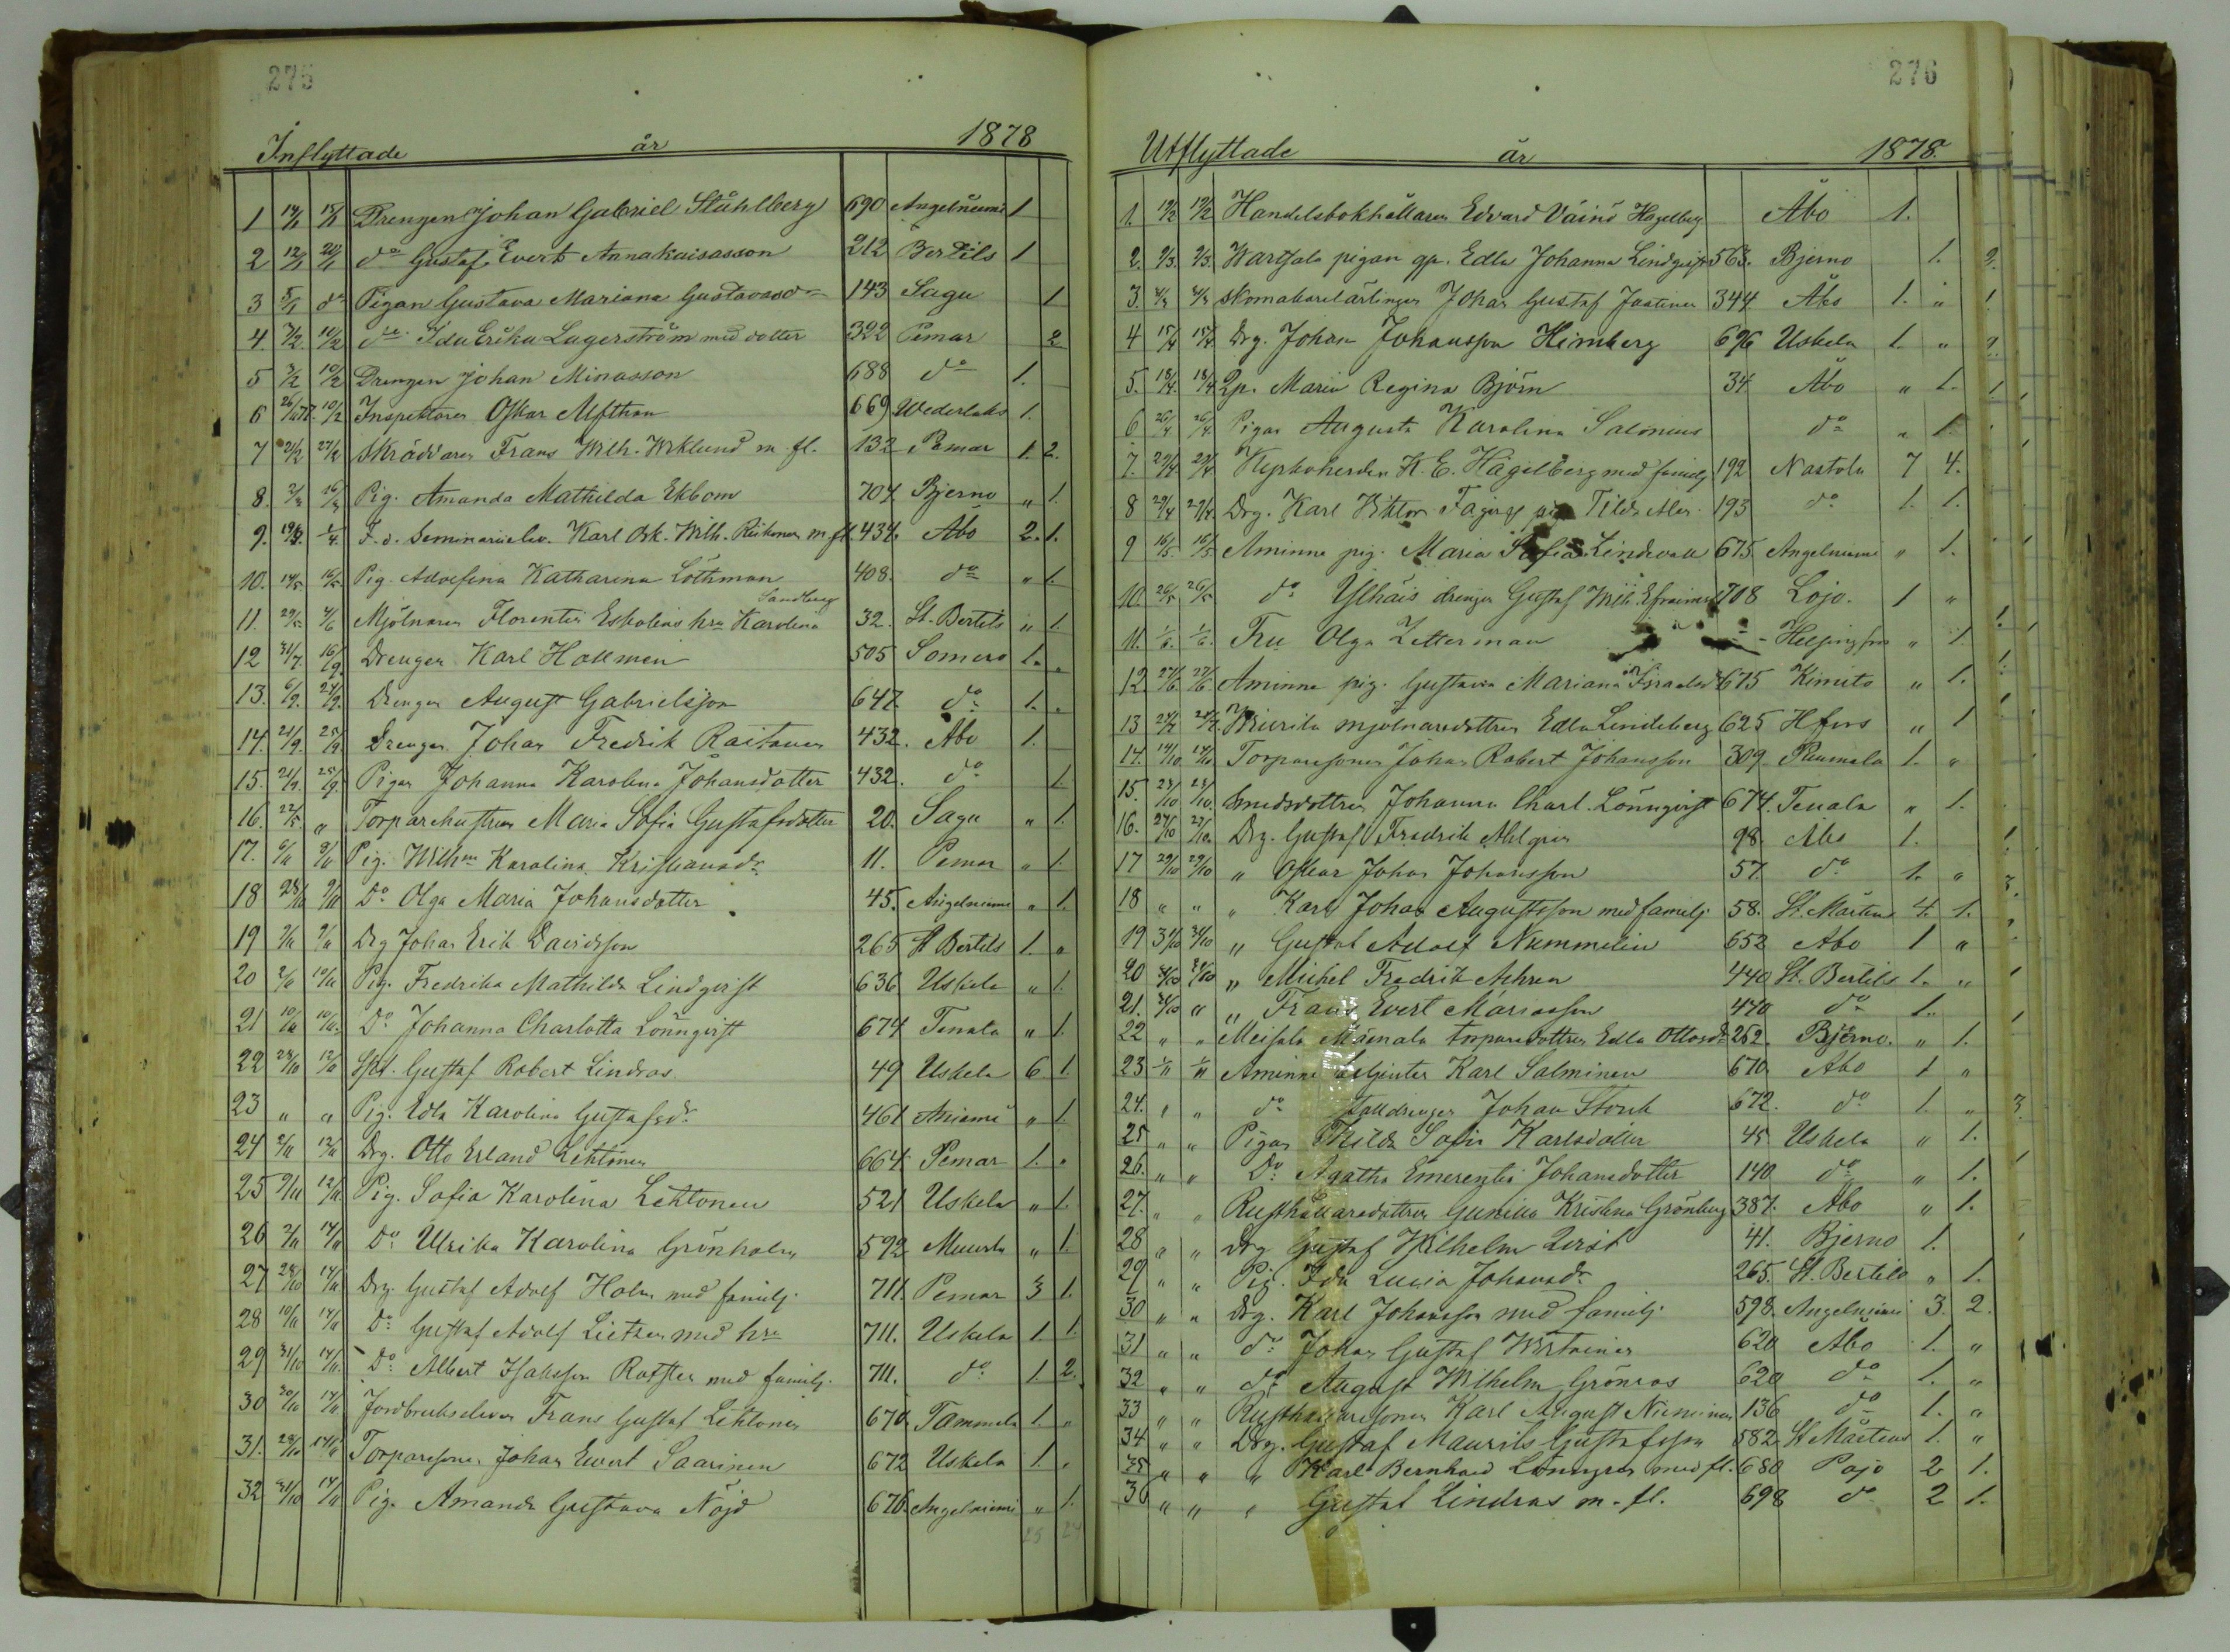 275
Inflyttade år 1878
1 14/1 15/1 Drengen Johan Gabriel Ståhlberg 690 Angelniemi 1
2 12/1 20/1 do Gustaf Evert Annakaisasson 212 Bertils 1
3 5/1 do Pigan Gustava Mariana Gustavasdr 143 Sagu 1
4. 7/2. 10/2 do Ida Erika Lagerström med dotter 322 Pemar 2
5 3/2 10/2 Drengen Johan Minasson 688 do 1.
6 10/2 Inspektoren Oskar Alfthan 669 Wederlaks 1.
7 21/2 27/2 Skräddaren Frans Wilh. Wiklund m. fl. 132 Pemar 1. 2.
8. Pig. Amanda Mathilda Ekbom 704 Bjerno „ 1.
9. 1/4. F. d. Seminarielev. Karl Osk. Wilh. Riikonen m fl 434. Åbo 2. 1.
10. 14/5 16/5 Pig. Adolfina Katharina Löthman 408. do „ 1.
Sandberg
11. 29/5 4/6 Mjölnaren Florentin Eskolins hru Karolina 32. St. Bertils „ 1.
12 31/7. 16/9. Drengen Karl Hallmén 505 Somero 1. „
13. 6/9. 24/9. Drengen August Gabrielsson 647. do 1. „
14. 21/9. 25/9 Drengen Johan Fredrik Raitanen 432. Åbo 1.
15. 21/9. 25/9. Pigan Johanna Karolina Johansdotter 432. do 1.
16. 22/5 „ Torparehustrun Maria Sofia Gustafsdotter 20. Sagu „ 1.
17. 6/11 8/11 Pig. Wilhma Karolina Kristiansdr 11. Pemar „ 1.
18 28/10 9/11 Do Olga Maria Johansdotter 45. Angelniemi „ 1.
19 2/11 9/11 Drg Johan Erik Davidsson 265 St Bertils 1. „
20 2/11 10/11 Pig. Fredrika Mathilda Lindqvist 636 Uskela „ 1.
21 10/11 10/11. Do Johanna Charlotta Lönnqvist 674 Tenala „ 1.
22 28/10 12/11 Gustaf Robert Lindros 49 Uskela 6 1.
23 „ „ Pig. Edla Karolina Gustafsdr 461 „ 1.
24 2/11 12/11 Drg. Otto Erland Lehtinen 664 Pemar 1. „
25 9/11 12/11 Pig. Sofia Karolina Lehtonen 521 Uskela „ 1.
26 2/11 14/11 Do Ulrika Karolina Grönholm 592 Muurla „ 1.
27 28/10 14/11 Drg. Gustaf Adolf Holm med familj. 711. Pemar 3 1.
28 10/11 14/11 Do Gustaf Adolf Lietzen med hru 711. Uskela 1. 1.
29 31/10 14/11 Do Albert Isaksson Rotsten med familj. 711. do 1. 2.
30 30/11 14/11 Jordbrukseleven Frans Gustaf Lehtonen 670. Tammela 1. „
31. 28/10 14/11 Torparesonen Johan Evert Saarinen 672 Uskela 1. „
32 31/10 14/11 Pig. Amanda Gustava Nöjd 676. Angelniemi „ 1.
25 24
276
Utflyttade år 1878.
1. 19/2 19/2 Handelsbokhållaren Edvard Väinö Hagelberg Åbo 1.
2. 9/3. 9/3. Wartsala pigan qp. Edla Johanna Lindqvist 563. Bjerno 1.
3. skomakarelärlingen Johan Gustaf Juatinen 344 Åbo 1. „
4 15/4 15/4 Drg. Johan Johansson Heimberg 696 Uskela 1. „
5. 18/4. 18/4. Qp. Maria Regina Björn 34 Åbo „ 1.
6 26/4 26/4. Pigan Augusta Karolina Salonius do „ 1.
7. 29/4 29/4 Kyrkoherden K. E. Hägelberg med familj 192 Nastola 7 4.
8 29/4 29/4. Drg. Karl Wiktor pig Tilda 193 do 1. 1.
9 16/5. 16/5 Aminne pig. Maria Sofia Lindevall 675 Angelniemi „ 1.
10. 26/5 26/5 do Ylhäis drengen Gustaf Wilh. Efraimss 708 Lojo. 1 „
11. 1/6. 1/6. Fru Olga Zetterman Helsingfors „ 1.
12 27/6 27/6 Aminne pig. Gustava Mariana Israelsdr 675 Kimito „ 1.
13 mjölnaredottren Edla Lindeberg 625 Hfors „ 1
14. 14/10. 14/10 Torparesonen Johan Robert Johansson 309. 1. „
15. 24/10 24/10. Smedsdottren Johanna Charl. Lönnqvist 674. Tenala „ 1.
16. 27/10 27/10. Drg. Gustaf Fredrik Ahlgren 98. Åbo 1.
17 29/10 29/10 „ Oskar Johan Johansson 57. do 1. „
18 „ „ „ Karl Johan Augustsson med familj 58. St. Mårtens 4. 1.
19 31/10 31/10 „ Gustaf Adolf Nummelin 652 Åbo 1 „
20 31/10 31/10 „ Michel Fredrik Achren 440 St. Bertils 1. „
21. 31/10 „ „ Frans Evert Mariasson 440 do 1.
22 „ „ Meisala Mäenala torparedottren Edla Ottosdr 252. Bjerno. „ 1.
23 1/11 1/11 Aminne Karl Salminen 670 Åbo 1 „
24. „ „ do stalldrengen Johan Storch 672. do 1. „
25 „ „ Pigan Thilda Sofia Karlsdotter 45 Uskela „ 1.
26. „ „ Do Agatha Emerentia Johansdotter 140 do „ 1.
27. „ „ Rusthållaredottren Gunilla Kristina Grönberg 387. Åbo „ 1.
28 „ „ Drg Gustaf Wilhelm Qvist 41. Bjerno 1.
29 „ „ Pig. Ida Lucia Johansdr 265. St. Bertils „ 1.
30 „ „ Drg. Karl Johansson med familj 598. Angelniemi 3. 2.
31 „ „ do Johan Gustaf Wirtainen 620 Åbo 1. „
32 „ „ do August Wilhelm Grönros 620 do 1. „
33 „ „ Rusthållaresonen Karl August Nieminen 136 do 1. „
34 „ „ Drg. Gustaf Maurits Gustafsson 582 St Mårtens 1. „
35 „ „ „ Karl Bernhard Lönngren med fl. 680 Pojo 2 1.
36 „ „ „ Gustaf Lindros m. fl. 698 do 2 1.